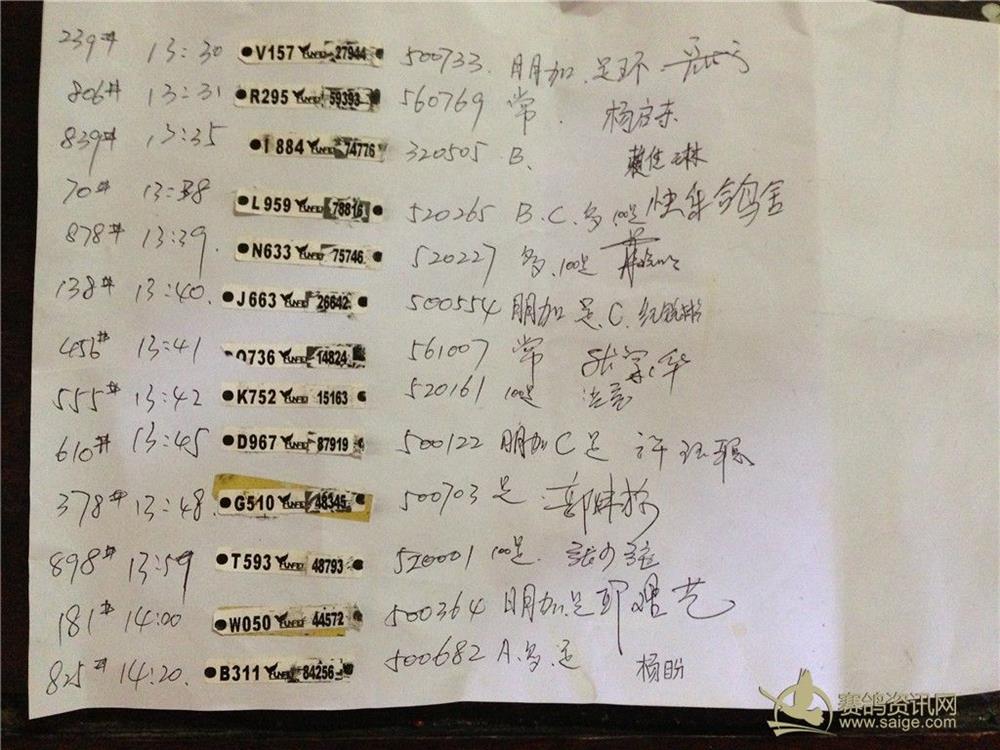 239# 13:30 V157 FUNFID 27944 500733. 朋加.足环.
806# 13:31 R295 FUNFID 59393 560769 常. 杨启东
839# 13:35 I 884 FUNFID 74776 320505 B. 戴佳琳
70# 13:38 L959 FUNFID 78816 520265 B.C.多.100足 快乐鸽舍
878# 13:39. N633 FUNFID 75746 520227 多.100足
138# 13:40. J663 FUNFID 26642 500554 朋加 足.C.
456# 13:41 Q736 FUNFID 14824 561007 常 张富华
555# 13:42 K752 FUNFID 15163 520161 100足
610# 13:45 D967 FUNFID 87919 500122 朋加C足 许
378# 13:48. G510 FUNFID 48345 500703 足.
898# 13:59 T593 FUNFID 48793 520001 100足. 张
181# 14:00 W050 FUNFID 44572 500364 朋加.足
825# 14:20. B311 FUNFID 84256 500682 A.多.足 杨盼
赛鸽资讯网
www.saige.com